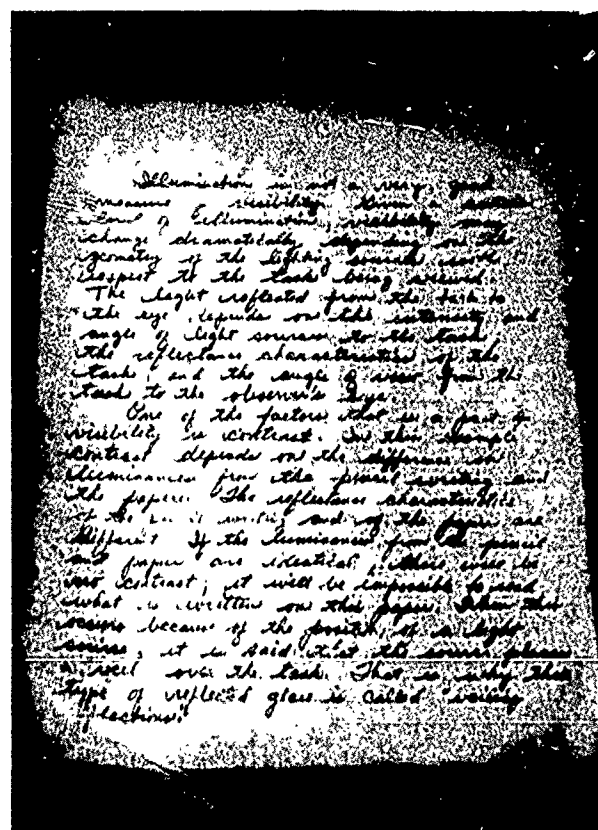 Illumination is not a very good
measure of visibility. Given a
level of illumination, visibility may
change dramatically depending on the
geometry of the lighting source with
respect to the task being viewed.
The light reflected from the task to
the eye depends on the intensity and
angle of light sources to the task
the reflectance characteristics of the
task, and the angle of view from the
task to the observer's eye
One of the factors that is a part of
visibility is contrast. In this sample
contrast depends on the difference in
luminances from the pencil writing and
the paper. The reflectance characteristics
of the pencil writing and of the paper are
different. If the luminances from the pencil
and paper are identical, there will be
no contrast; it will be impossible to read
what is written on this paper. When this
occurs because of the position of a light
source, it is said that the source places
a veil over the task. That is why this
type of reflected glare is called "veiling
reflections."